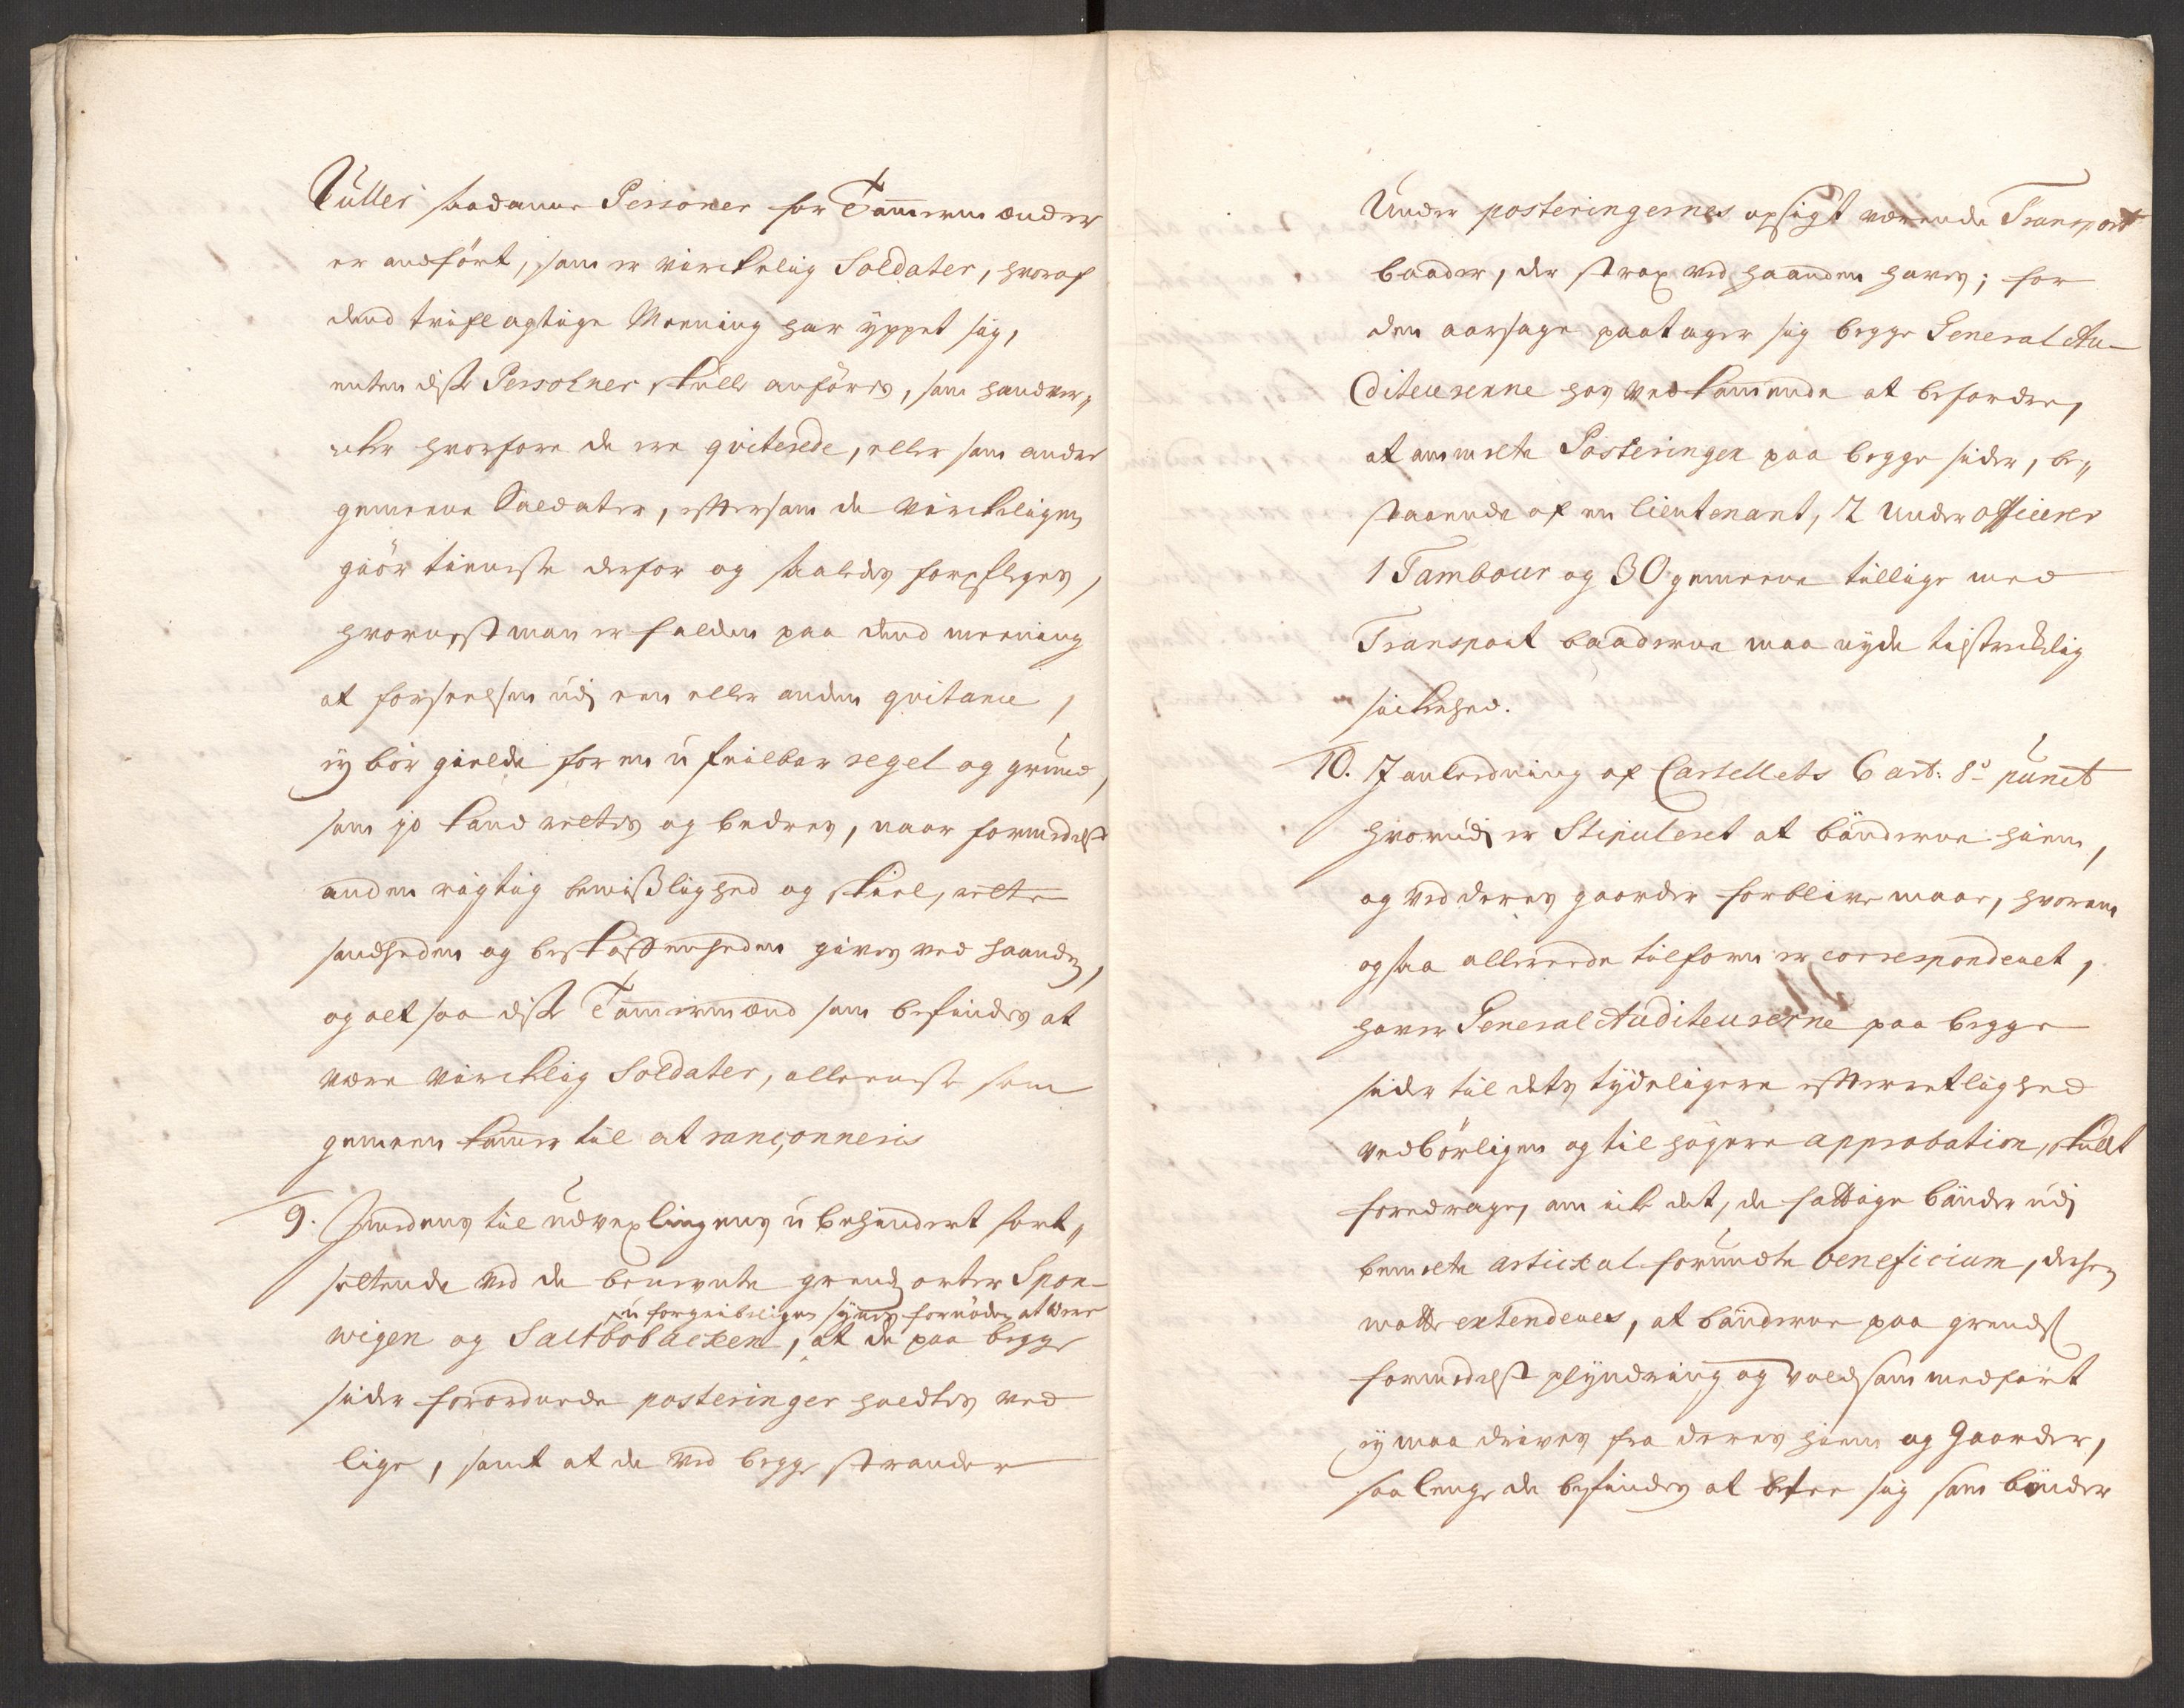 Rullér saadanne Personer for Tømmermænder
er andført, som er virckelig Soldater, hvoraf
dend tvifl agtige Meening har yppet sig,
enten diße Persohner skulle anføres, som handver„
cker hvorfore de ere qviterede, eller som andre
gemeene Soldater, eftersom de virckeligen
giör tienneste derfor og saaledes forpfleges,
hvornest man er falden paa dend meening
at forseelsen udj een eller anden qvitance,
ey bör gielde for en ufeilbar regel og grund,
som jo kand rettes og bedres, naar formedelst
anden rigtig bewißlighed og skiel, rette
sandheden og beskaffenheden gives ved haanden,
og altsaa diße Tømmermænd som befindes at
være virckelig Soldater, alleeneste som
gemeen kommer til at rançonneris
9. Imidens til udvexlingens ubehindret fort„
settende ved de benevnte grendseorter Spon-
uforgribeligen synes fornøden at være
wigen og Saltbobacken, at de paa begge
sider forordnede posteringer holdtes ved
lige, samt at de ved begge strander
Under posteringernes opsigt værende Transport
baader, der strax ved haanden haves; for
den aarsage paatager sig begge General Au-
diteurerne hos vedkommende at befordre,
at anmelte Posteringer paa begge sider, be„
staaende af en lieutenant, 2 Underofficerer
1 Tambour og 30 gemeene tillige med
Transport baaderne maa nyde tilstreckelig
sickerhed.
10. I anledning af Cartellets 6 art: 8de punct
hvorudj er Stipuleret at bönderne hiem,
og ved deres gaarder forblive maae, hvorom
ogsaa allereede tilforn er corresponderet,
haver General Auditeurerne paa begge
sider til dets tydeligere efterretlighed
vedbörligen og til høyere approbation, skullet
foredrage, om icke det, de fattige bönder udj
bemelte articul forundte beneficium, dersen
motte extenderes, at bönderne paa grendsen
formedelst plyndring og voldsom medfart
ey maa drives fra deres hiem og Gaarder,
saa lenge de befindes at betee sig som bönder